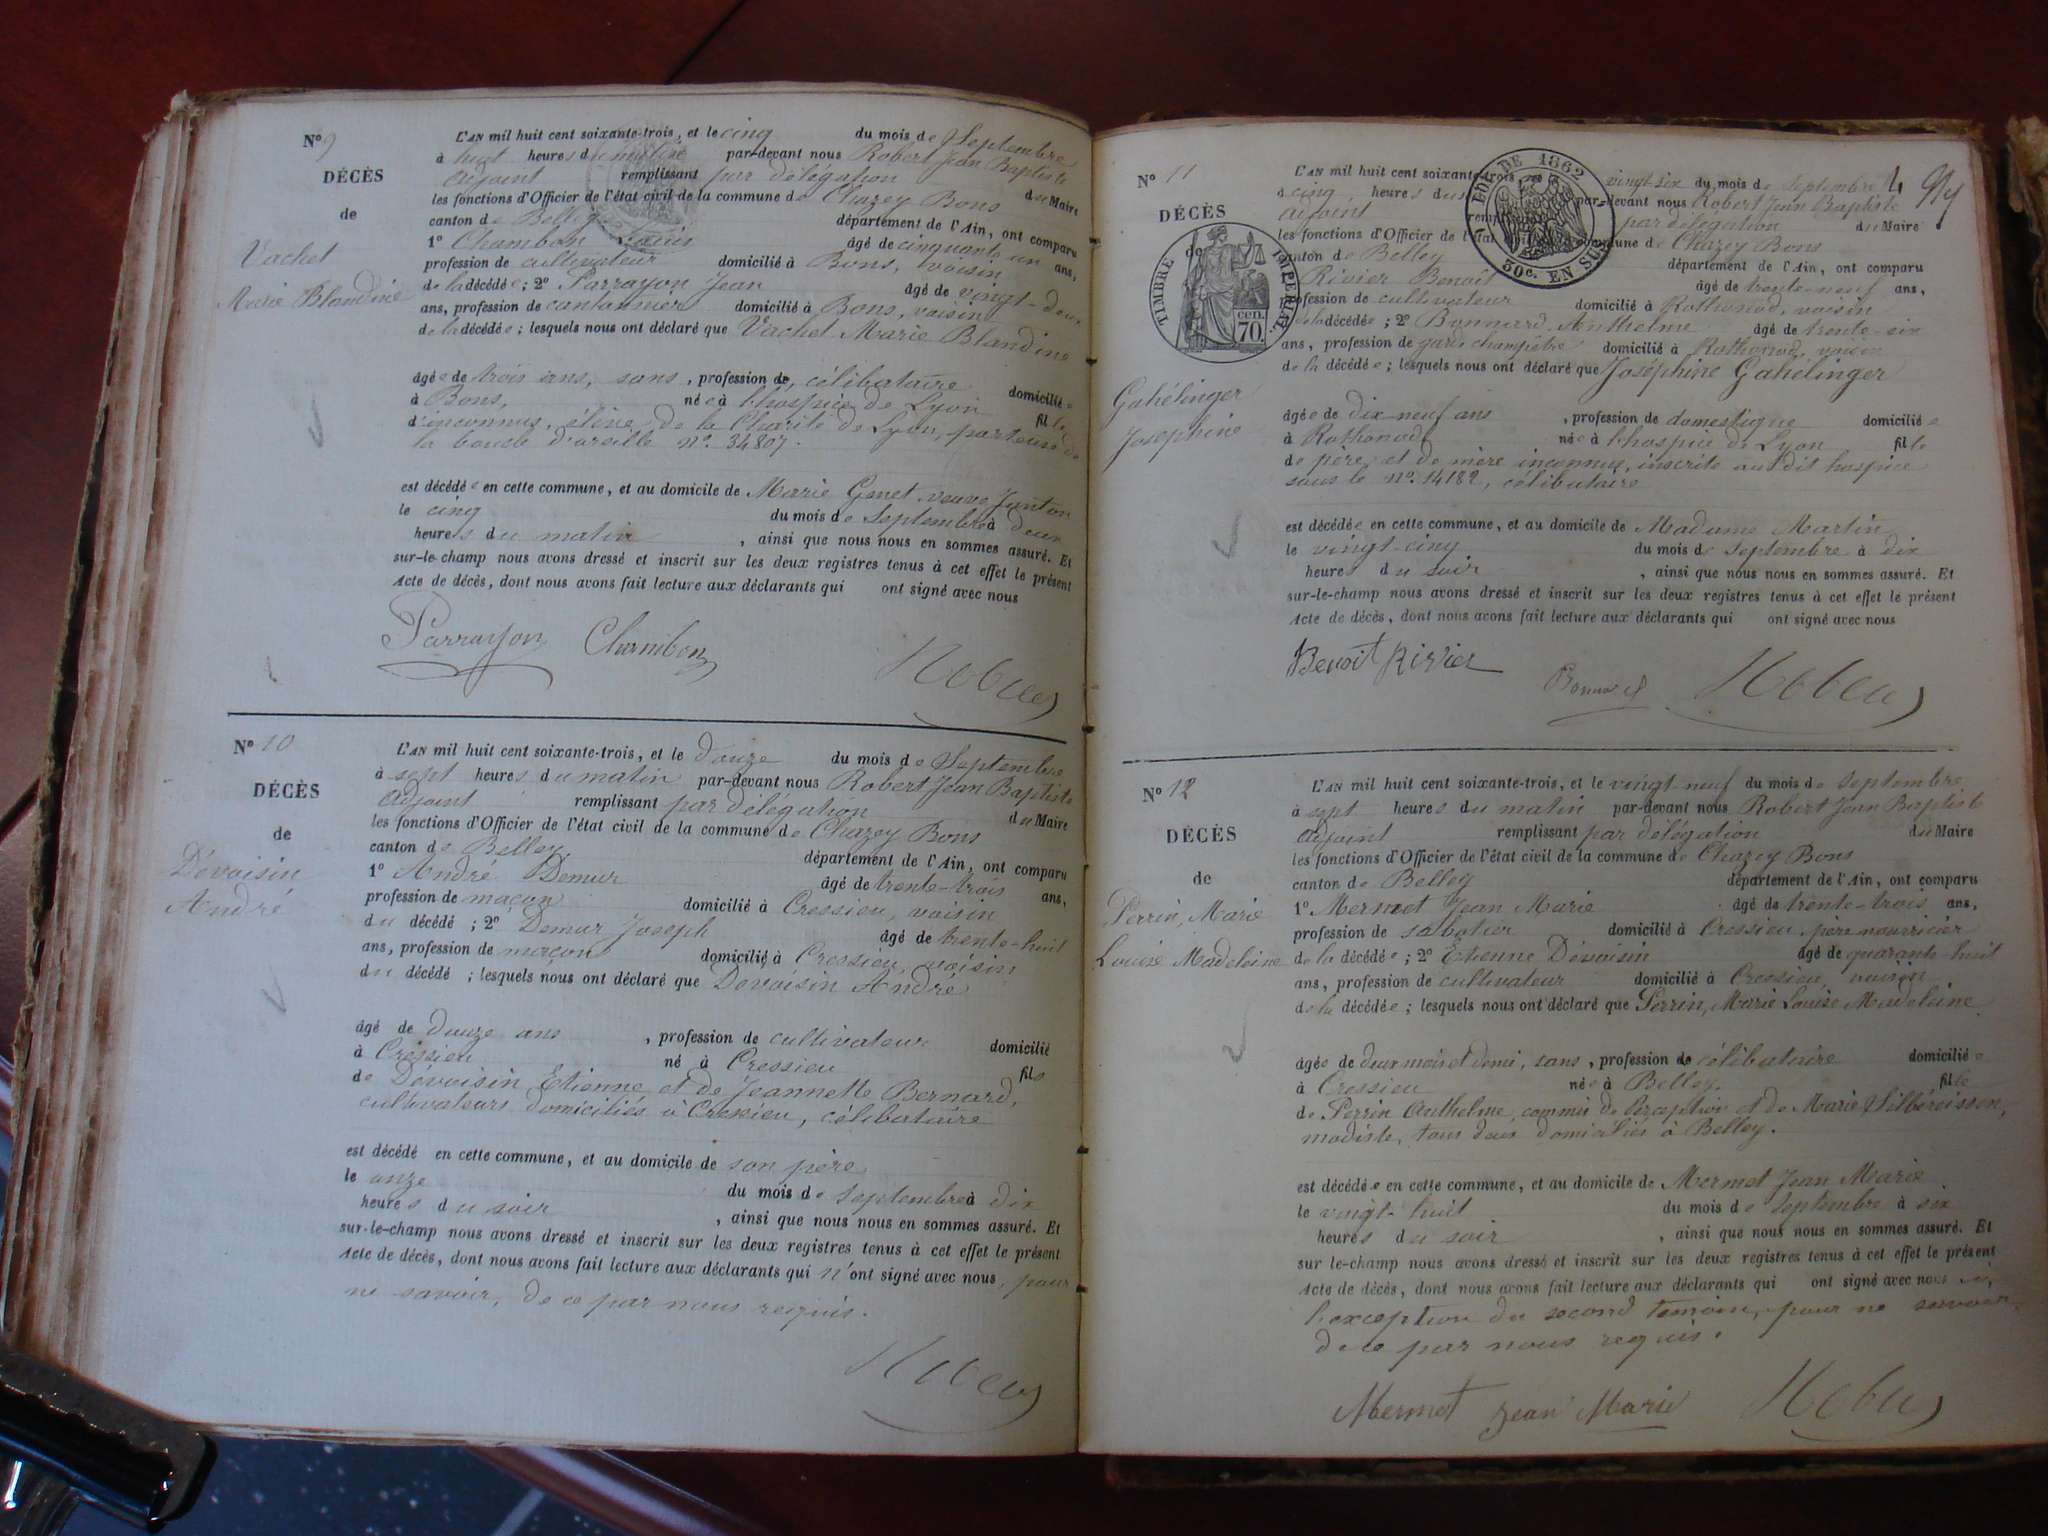 Nº 9
DÉCÈS
de
Vachet
Marie Blandine
L'AN mil huit cent soixante-trois, et le cinq du mois de Septembre
à huit heures du matin par-devant nous Robert Jean Baptiste
adjoint remplissant par délégation du Maire
les fonctions d'Officier de l'état civil de la commune de Chazey Bons
canton de Belley département de l'Ain, ont comparu
1º Chambon Louis âgé de cinquante un ans,
profession de cultivateur domicilié à Bons, voisin
de la décédée; 2º Parrayon Jean âgé de vingt-deux
ans, profession de cantonnier domicilié à Bons, voisin
de la décédée; lesquels nous ont déclaré que Vachet Marie Blandine
âgée de trois ans, sans, profession de, célibataire domiciliée
à Bons, née à l'hospice de Lyon fille
d'inconnus, élève de la Charité de Lyon, porteuse de
la boucle d'oreille nº 34807.
est décédée en cette commune, et au domicile de Marie Genet veuve Janton
le cinq du mois de Septembre à deux
heures du matin, ainsi que nous nous en sommes assuré. Et
sur-le-champ nous avons dressé et inscrit sur les deux registres tenus à cet effet le présent
Acte de décès, dont nous avons fait lecture aux déclarants qui ont signé avec nous
Parrayon Chambon
Nº 10
DÉCÈS
de
Dévoisin
André
L'AN mil huit cent soixante-trois, et le douze du mois de Septembre
à sept heures du matin par-devant nous Robert Jean Baptiste
adjoint remplissant par délégation du Maire
les fonctions d'Officier de l'état civil de la commune de Chazey Bons
canton de Belley département de l'Ain, ont comparu
1º André Demur âgé de trente-trois ans,
profession de maçon domicilié à Cressieu, voisin
du décédé; 2º Demur Joseph âgé de trente-huit
ans, profession de maçon domicilié à Cressieu, voisin
du décédé; lesquels nous ont déclaré que Dévoisin André
âgé de douze ans, profession de cultivateur domicilié
à Cressieu né à Cressieu fils
de Dévoisin Etienne et de Jeannette Bernard,
cultivateurs domiciliés à Cressieu, célibataire
est décédé en cette commune, et au domicile de son père
le onze du mois de Septembre à dix
heures du soir, ainsi que nous nous en sommes assuré. Et
sur-le-champ nous avons dressé et inscrit sur les deux registres tenus à cet effet le présent
Acte de décès, dont nous avons fait lecture aux déclarants qui n'ont signé avec nous, pour
ne savoir, de ce par nous requis.
Nº 11
DÉCÈS
de
TIMBRE IMPÉRIAL
cen. 70.
Gahélinger
Joséphine
DE 1862
30c. EN SUS
L'AN mil huit cent soixante-trois vingt-six du mois de Septembre
à cinq heures du par-devant nous Robert Jean Baptiste
adjoint remplissant par délégation du Maire
les fonctions d'Officier de l'état civil de la commune de Chazey Bons
canton de Belley département de l'Ain, ont comparu
Rivier Benoît âgé de trente-neuf ans,
profession de cultivateur domicilié à Rothonod, voisin
de la décédée; 2º Bonnard Anthelme âgé de trente-six
ans, profession de garde champêtre domicilié à Rothonod, voisin
de la décédée; lesquels nous ont déclaré que Joséphine Gahélinger
âgée de dix-neuf ans, profession de domestique domiciliée
à Rothonod née à l'hospice de Lyon fille
de père et de mère inconnus, inscrite au dit hospice
sous le nº 14182, célibataire
est décédée en cette commune, et au domicile de Madame Martin
le vingt-cinq du mois de Septembre à dix
heures du soir, ainsi que nous nous en sommes assuré. Et
sur-le-champ nous avons dressé et inscrit sur les deux registres tenus à cet effet le présent
Acte de décès, dont nous avons fait lecture aux déclarants qui ont signé avec nous
Benoit Rivier
Bonnard
Nº 12
DÉCÈS
de
Perrin, Marie
Louise Madeleine
L'AN mil huit cent soixante-trois, et le vingt-neuf du mois de Septembre
à sept heures du matin par-devant nous Robert Jean Baptiste
adjoint remplissant par délégation du Maire
les fonctions d'Officier de l'état civil de la commune de Chazey Bons
canton de Belley département de l'Ain, ont comparu
1º Mermet Jean Marie âgé de trente-trois ans,
profession de sabotier domicilié à Cressieu, père nourricier
de la décédée; 2º Etienne Dévoisin âgé de quarante-huit
ans, profession de cultivateur domicilié à Cressieu, voisin
de la décédée; lesquels nous ont déclaré que Perrin, Marie Louise Madeleine
âgée de deux mois et demi, sans, profession de célibataire domiciliée
à Cressieu née à Belley. fille
de Perrin Anthelme, commis de perception et de Marie Silbéreissen,
modiste, tous deux domiciliés à Belley.
est décédée en cette commune, et au domicile de Mermet Jean Marie
le vingt-huit du mois de Septembre à six
heures du soir, ainsi que nous nous en sommes assuré. Et
sur le-champ nous avons dressé et inscrit sur les deux registres tenus à cet effet le présent
Acte de décès, dont nous avons fait lecture aux déclarants qui ont signé avec nous à
l'exception du second témoin, pour ne savoir,
de ce par nous requis.
Mermet Jean Marie